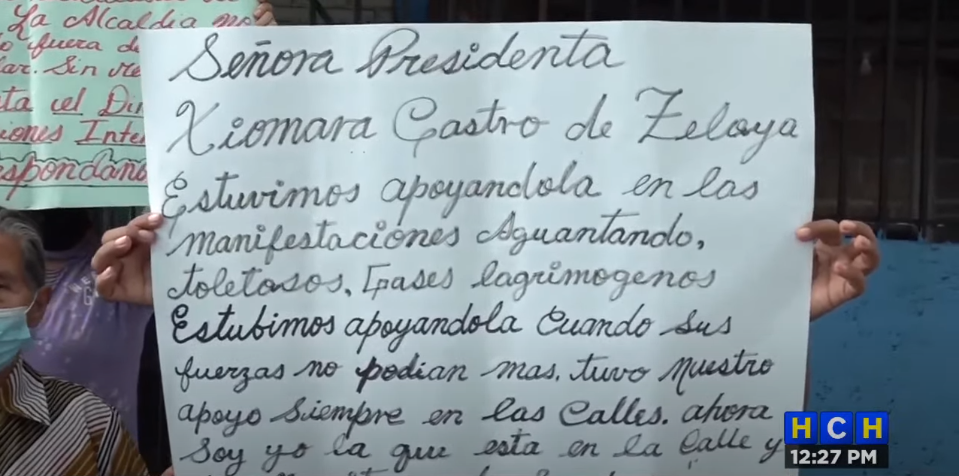 La Alcaldía no
o fuera de
lar. Sin
ta el Di
iones Inte
spondano
Señora Presidenta
Xiomara Castro de Zelaya
Estuvimos apoyandola en las
manifestaciones Aguantando,
toletasos, Gases lagrimogenos
Estubimos apoyandola Cuando Sus
fuerzas no podian mas, tuvo Nuestro
apoyo Siempre en las Calles. ahora
Soy yo la que esta en la Calle y
HCH
12:27 PM